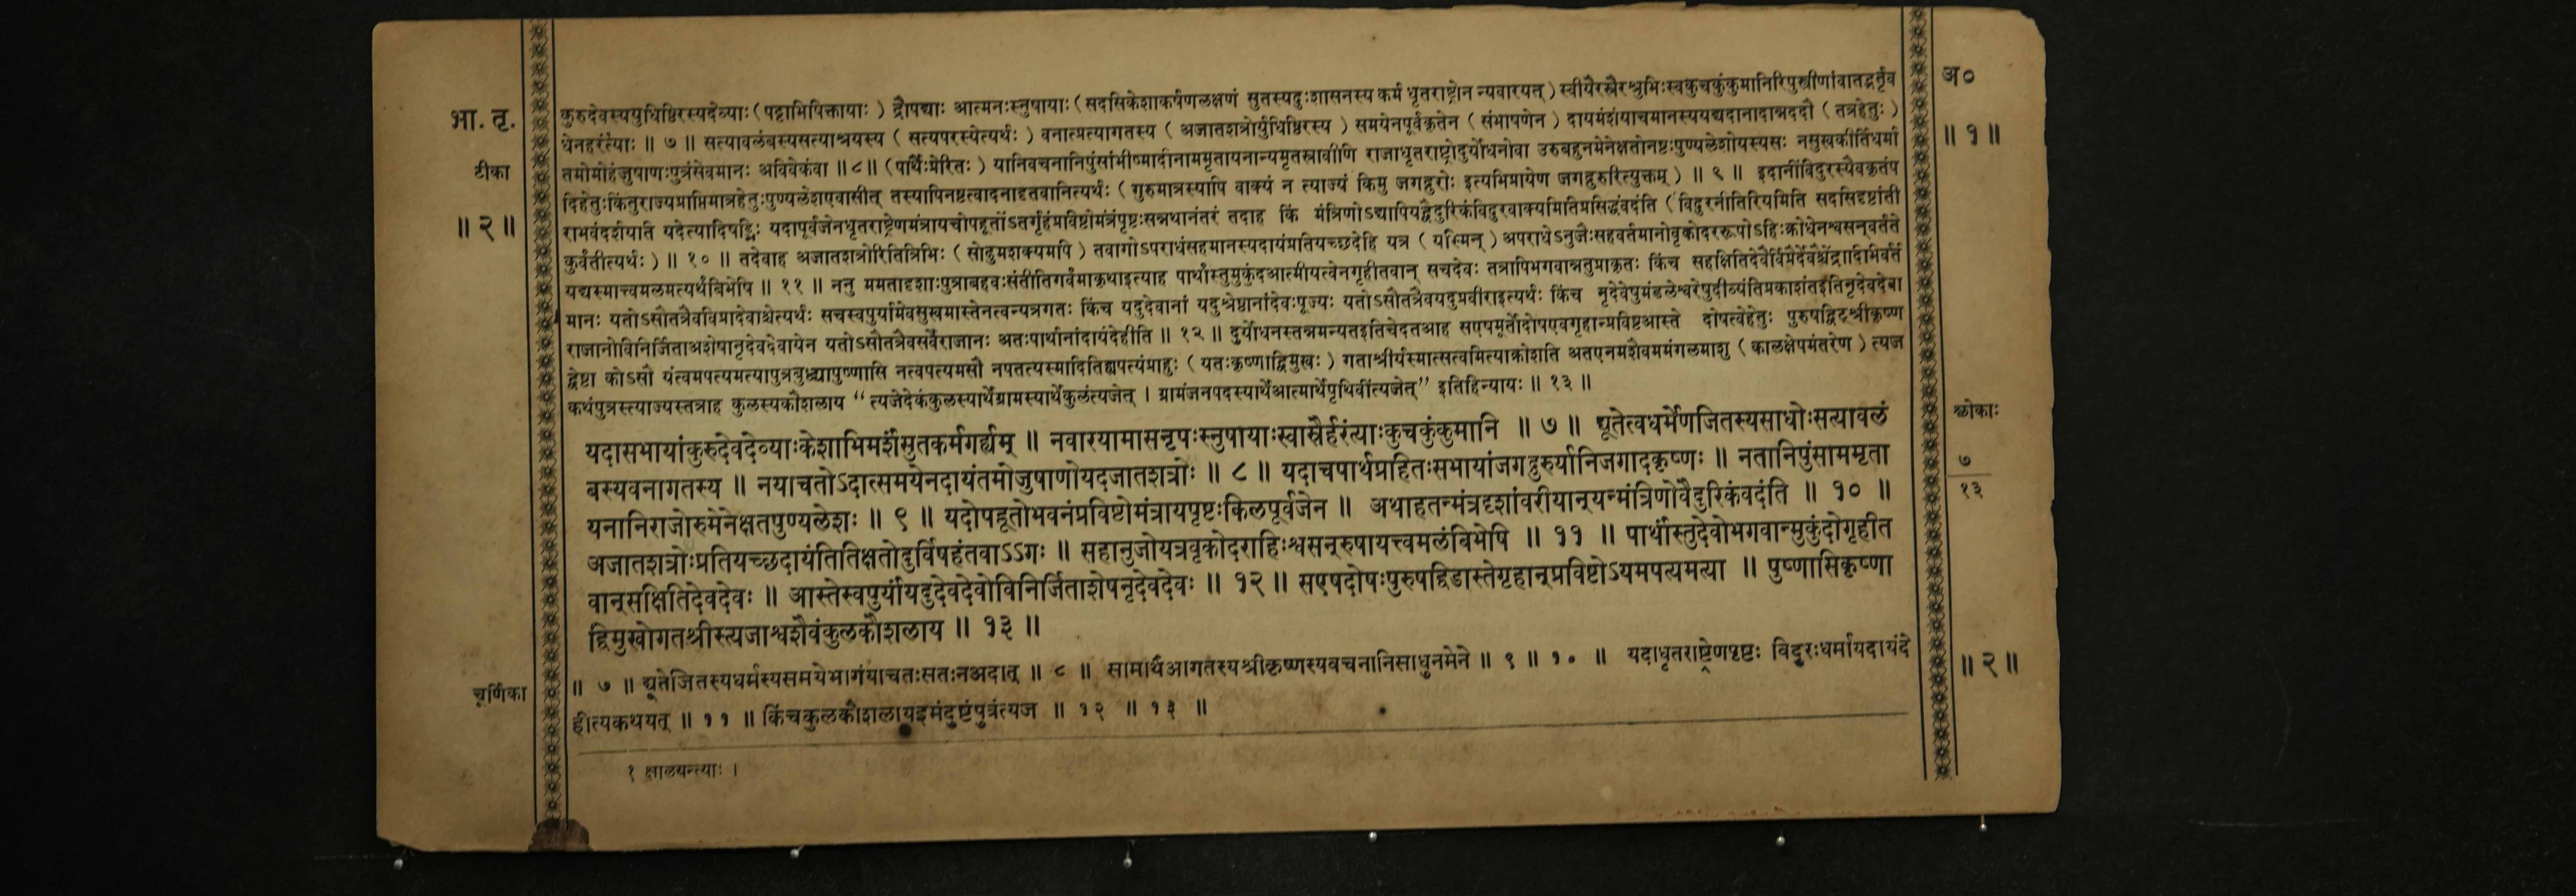 भा. तृ.
टीका
॥ २ ॥
अ०
॥ १ ॥
कुरुदेवस्ययुधिष्ठिरस्यदेव्याः (पट्टाभिषिक्तायाः ) द्रौपद्याः आत्मनःस्नुषायाः (सदसिकेशाकर्षणलक्षणं सुतस्यदुःशासनस्य कर्म धृतराष्ट्रोन न्यवारयत् ) स्वीयैरस्रैरश्रुभिःस्वकुचकुंकुमानिरिपुस्त्रीणांवातद्भर्तृव
धेनहरंत्याः ॥ ७ ॥ सत्यावलंबस्यसत्याश्रयस्य ( सत्यपरस्येत्यर्थः ) वनात्प्रत्यागतस्य ( अजातशत्रोर्युधिष्ठिरस्य ) समयेनपूर्वकृतेन ( संभाषणेन ) दायमंशंयाचमानस्ययद्यदानादान्नददौ ( तत्रहेतुः )
तमोमोहंजुषाणःपुत्रंसेवमानः अविवेकंवा ॥ ८ ॥ (पार्थैःप्रेरितः ) यानिवचनानिपुंसांभीष्मादीनाममृतायनान्यमृतस्रावीणि राजाधृतराष्ट्रोदुर्योधनोवा उरुबहुनमेनेक्षतोनष्टःपुण्यलेशोयस्यसः नसुखकीर्तिधर्मा
दिहेतुःकिंतुराज्यप्राप्तिमात्रहेतुःपुण्यलेशएवासीत् तस्यापिनष्टत्वादनादृतवानित्यर्थः ( गुरुमात्रस्यापि वाक्यं न त्याज्यं किमु जगद्गुरोः इत्यभिप्रायेण जगद्गुरुरित्युक्तम् ) ॥ ९ ॥ इदानींविदुरस्यैवकृतंप
राभवंदर्शयति यदेत्यादिषड्भिः यदापूर्वजेनधृतराष्ट्रेणमंत्रायचोपहूतोंऽतर्गृहंप्रविष्टोमंत्रंपृष्टःसन्नथानंतरं तदाह किं मंत्रिणोऽद्यापियद्वैदुरिकंविदुरवाक्यमितिप्रसिद्धंवदंति (विदुरनीतिरियमिति सदसिदृष्टांती
कुर्वंतीत्यर्थः ) ॥ १० ॥ तदेवाह अजातशत्रोरितित्रिभिः ( सोढुमशक्यमपि ) तवागोऽपराधंसहमानस्यदायंप्रतियच्छदेहि यत्र ( यस्मिन् ) अपराधेऽनुजैःसहवर्तमानोवृकोदररूपोऽहिःक्रोधेनश्वसन्वर्तते
यद्यस्मात्त्वमलमत्यर्थंबिभेषि ॥ ११ ॥ ननु ममतादृशाःपुत्राबहवःसंतीतिगर्वंमाकृथाइत्याह पार्थांस्तुमुकुंदआत्मीयत्वेनगृहीतवान् सचदेवः तत्रापिभगवान्नतुप्राकृतः किंच सहक्षितिदेवैर्विप्रैर्देवैश्चेंद्रादिभिर्वर्त
मानः यतोऽसौतत्रैवविप्रादेवाश्चेत्यर्थः सचस्वपुर्यामेवसुखमास्तेनत्वन्यत्रगतः किंच यदुदेवानां यदुश्रेष्ठानांदेवःपूज्यः यतोऽसौतत्रैवयदुप्रवीराइत्यर्थः किंच नृदेवेषुमंडलेश्वरेषुदीव्यंतिप्रकाशंतइतिनृदेवदेवा
राजानोविनिर्जिताअशेषानृदेवदेवायेन यतोऽसौतत्रैवसर्वेराजानः अतःपार्थानांदायंदेहीति ॥ १२ ॥ दुर्योधनस्तन्नमन्यतइतिचेदतआह सएषमूर्तोदोषएवगृहान्प्रविष्टआस्ते दोषत्वेहेतुः पुरुषद्विट्श्रीकृष्ण
द्वेष्टा कोऽसौ यंत्वमपत्यमत्यापुत्रबुद्ध्यापुष्णासि नत्वपत्यमसौ नपतत्यस्मादितिह्यपत्यंप्राहुः ( यतःकृष्णाद्विमुखः ) गताश्रीर्यस्मात्सत्वमित्याक्रोशति अतएनमशैवममंगलमाशु ( कालक्षेपमंतरेण ) त्यज
कथंपुत्रस्त्याज्यस्तत्राह कुलस्यकौशलाय “ त्यजेदेकंकुलस्यार्थेग्रामस्यार्थेकुलंत्यजेत् । ग्रामंजनपदस्यार्थेआत्मार्थेपृथिवींत्यजेत्” इतिहिन्यायः ॥ १३ ॥
यदासभायांकुरुदेवदेव्याःकेशाभिमर्शंसुतकर्मगर्ह्यम् ॥ नवारयामासनृपःस्नुषायाःस्वास्रैर्हरंत्याःकुचकुंकुमानि ॥ ७ ॥ द्यूतेत्वधर्मेणजितस्यसाधोःसत्यावलं
बस्यवनागतस्य ॥ नयाचतोऽदात्समयेनदायंतमोजुषाणोयदजातशत्रोः ॥ ८ ॥ यदाचपार्थप्रहितःसभायांजगद्गुरुर्यानिजगादकृष्णः ॥ नतानिपुंसाममृता
यनानिराजोरुमेनेक्षतपुण्यलेशः ॥ ९ ॥ यदोपहूतोभवनंप्रविष्टोमंत्रायपृष्टःकिलपूर्वजेन ॥ अथाहतन्मंत्रदृशांवरीयान्यन्मंत्रिणोवैदुरिकंवदंति ॥ १० ॥
अजातशत्रोःप्रतियच्छदायंतितिक्षतोदुर्विषहंतवाऽऽगः ॥ सहानुजोयत्रवृकोदराहिःश्वसन्रुषायत्त्वमलंबिभेषि ॥ ११ ॥ पार्थांस्तुदेवोभगवान्मुकुंदोगृहीत
वान्सक्षितिदेवदेवः ॥ आस्तेस्वपुर्यांयदुदेवदेवोविनिर्जिताशेषनृदेवदेवः ॥ १२ ॥ सएषदोषःपुरुषद्विडास्तेगृहान्प्रविष्टोऽयमपत्यमत्या ॥ पुष्णासिकृष्णा
द्विमुखोगतश्रीस्त्यजाश्वशैवंकुलकौशलाय ॥ १३ ॥
श्लोकाः
७
१३
चूर्णिका
॥ ७ ॥ द्यूतेजितस्यधर्मस्यसमयेभागंयाचतःसतःनअदात् ॥ ८ ॥ सामार्थंआगतस्यश्रीकृष्णस्यवचनानिसाधुनमेने ॥ ९ ॥ १० ॥ यदाधृतराष्ट्रेणपृष्टः विदुरःधर्मायदायंदे
हीत्यकथयत् ॥ ११ ॥ किंचकुलकौशलायइमंदुष्टंपुत्रंत्यज ॥ १२ ॥ १३ ॥
॥ २ ॥
१ क्षालयन्त्याः ।